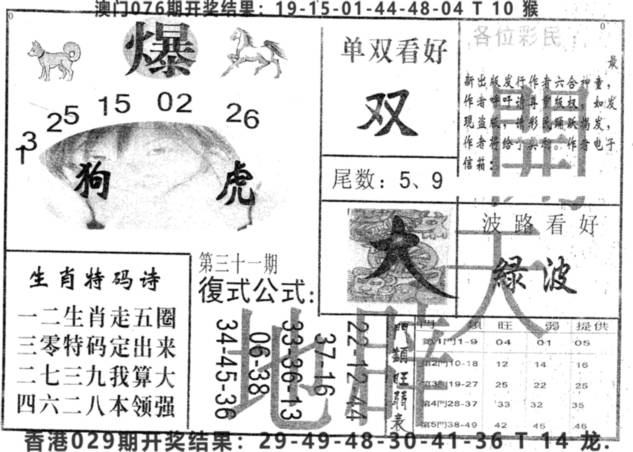 澳门076期开奖结果：19-15-01-44-48-04 T 10 猴
爆
25 15 02 26
3
狗 虎
单双看好
双
尾数：5、9
各位彩民：
最
新出版发行作者六合神童，
作者呼吁请尊重版权，如发
现盗版，请彩民踊跃揭发，
作者将给予奖励。作者电子
信箱：
開
大
波路看好
緑波
天
地
生肖特码诗
一二生肖走五圈
三零特码定出来
二七三九我算大
四六二八本领强
第三十一期
復式公式:
34-45-36
06-38
33-36-13
37-16
22-12-44
門類旺弱表
門 類 旺 弱 提供
第1門1-9 04 01 05
第2門10-18 12 14 16
第3門19-27 25 22 25
第4門28-37 33 32 35
第5門38-49 42 45 46
香港029期开奖结果：29-49-48-30-41-36 T 14 龙.